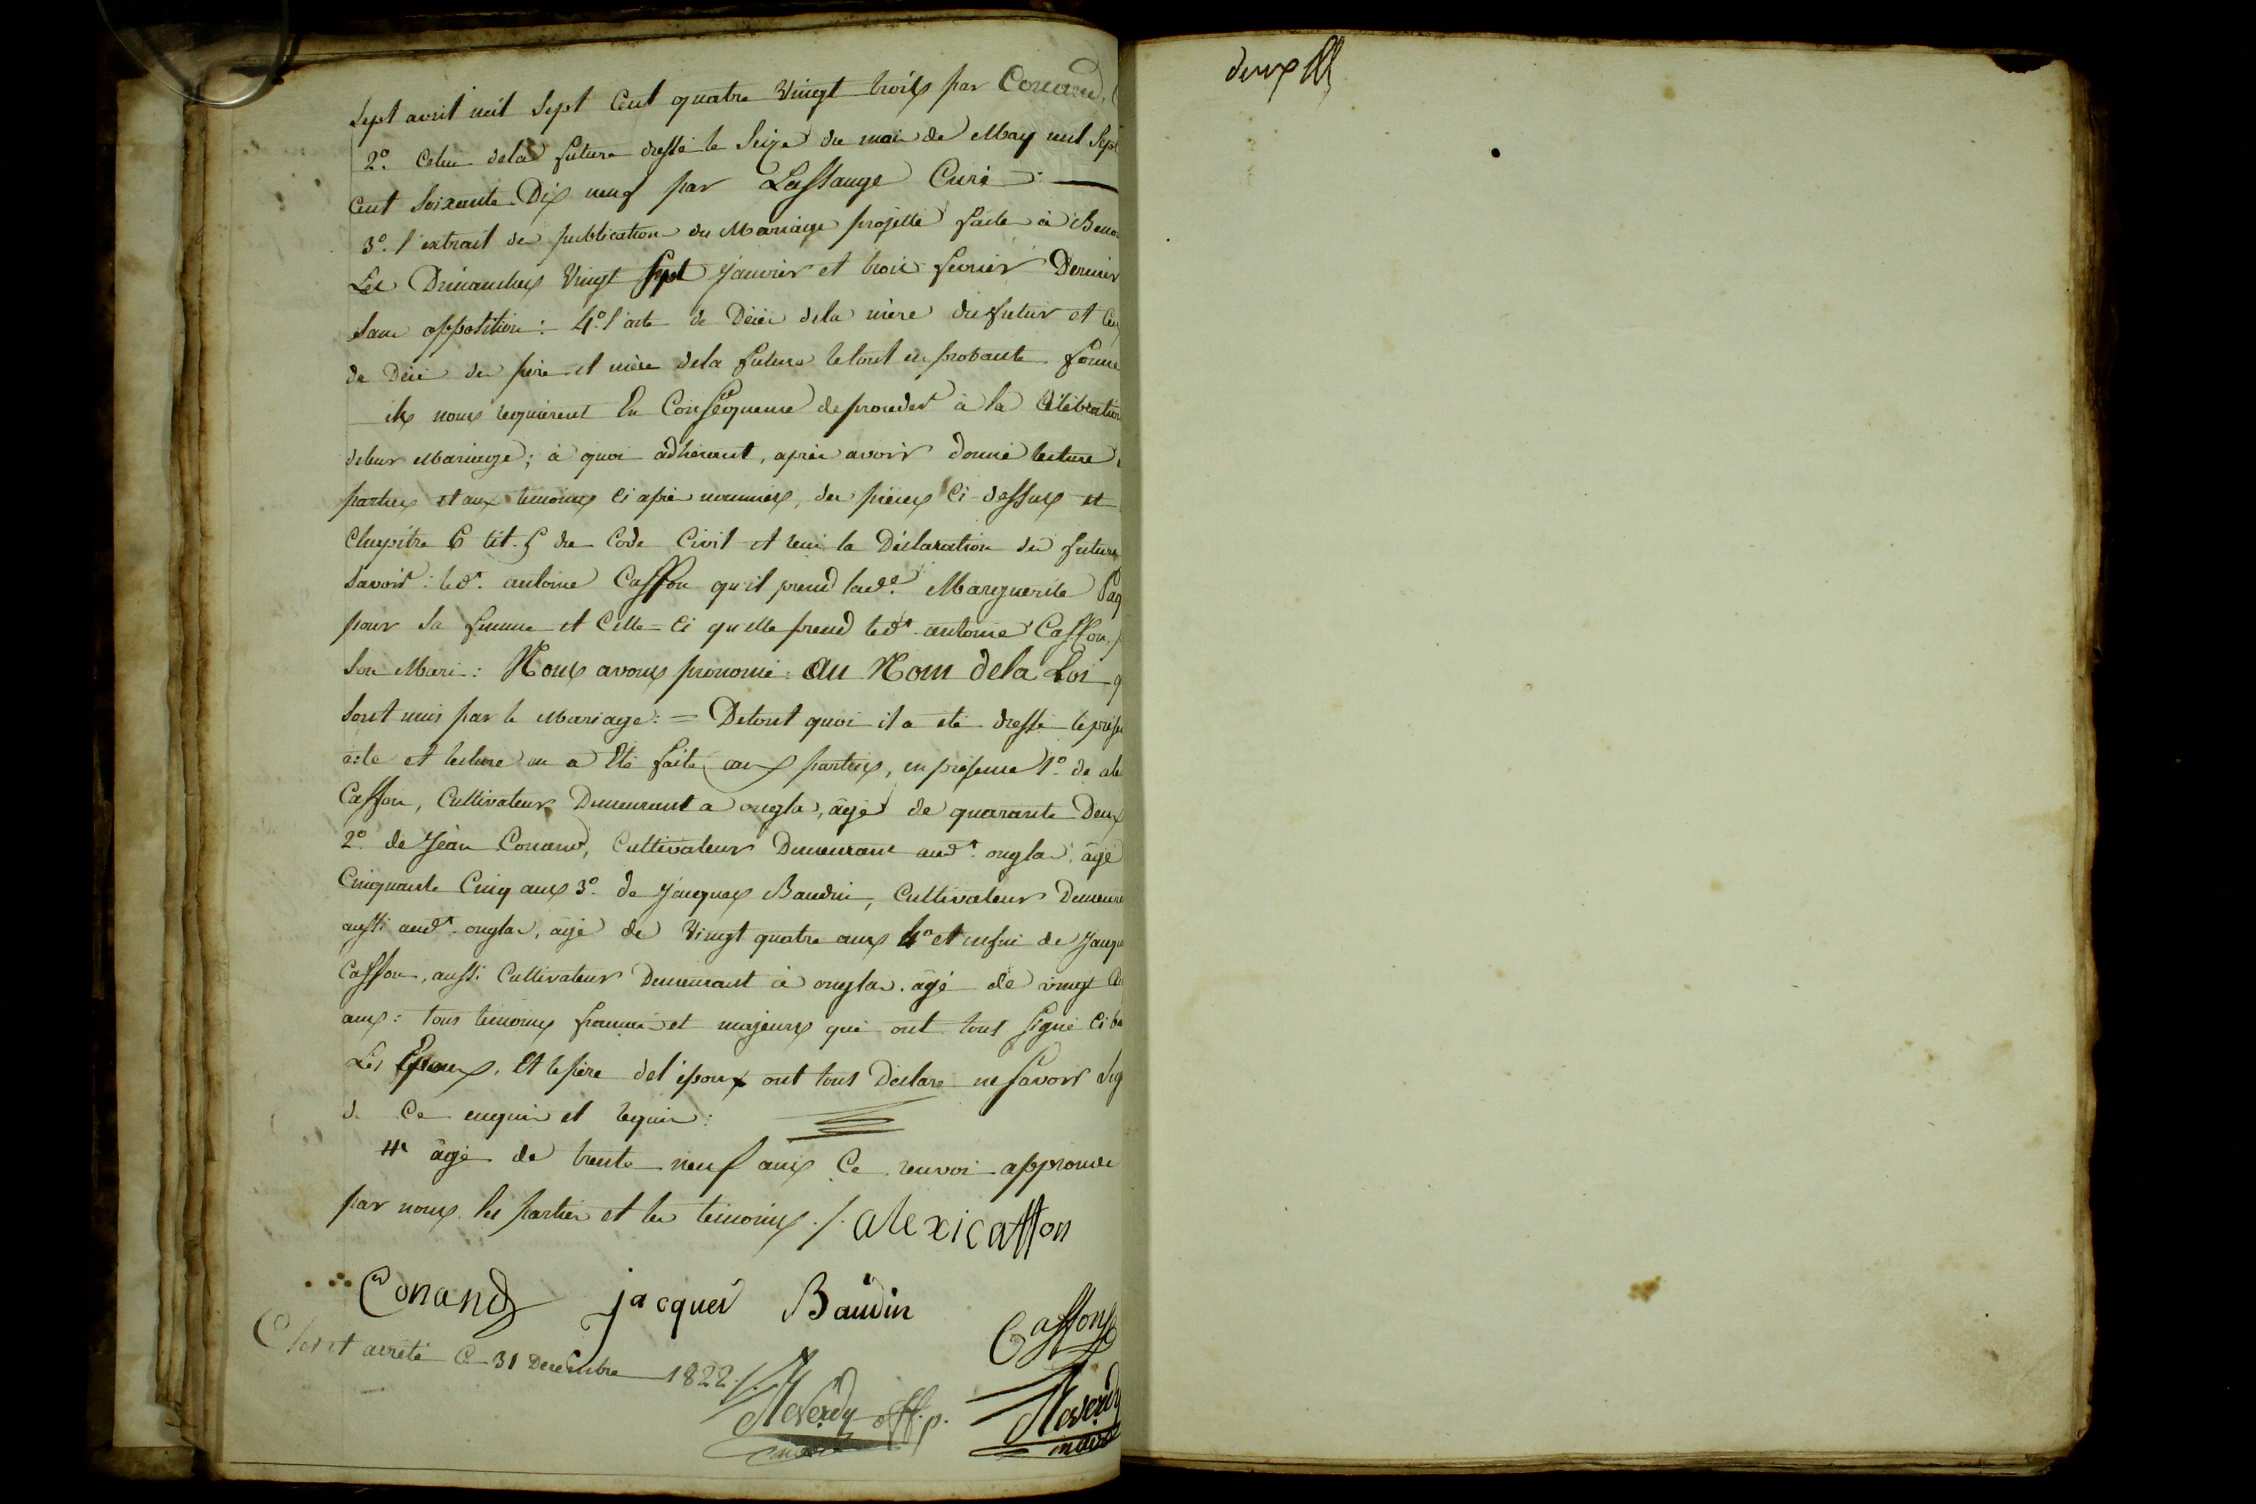 sept avril mil sept cent quatre vingt trois par Conand,
2º. celui dela future dressé le seize du mois de May mil sept
cent soixante Dix neuf par Lassauge Curé :
3º. l'extrait de publication du Mariage projetté faite à
Les Dimanches vingt sept janvier et trois fevrier Dernier
sans opposition : 4º. l'acte de Décès dela mère du futur et
de Décès des père et mère dela future le tout en probante forme
ils nous requièrent En Conséquence de proceder à la Célébration
deleur Mariage ; à quoi adhérant, après avoir donné lecture
parties et aux temoins ci après nommés, des pièces Ci-dessus et
Chapitre 6 tit. 5 du Code Civil et reçu la Déclaration des futurs
savoir : led.t antoine Caffon qu'il prend lad.e Marguerite
pour sa femme et Celle-Ci qu'elle prend led.t antoine Caffon
son Mari : Nous avons prononcé : au Nom dela Loi
sont unis par le Mariage : = Detout quoi il a été dressé le
acte et lecture en a Eté faite aux parties, en présence 1º. de
Caffon, Cultivateur Demeurant a ongla, âgé de quarante Deux
2º. de Jean Conand, Cultivateur Demeurant aud.t ongla, âgé
Cinquante Cinq ans 3º. de jacques Baudin, Cultivateur
aussi aud.t ongla, âgé de Vingt quatre ans 4º et enfin de
Caffon, aussi Cultivateur Demeurant à ongla, âgé de vingt
ans : tous temoins francais et majeurs qui ont tous signé
Les Epoux, Et le père del'époux ont tous Déclaré ne savoir
de Ce enquis et requis :
âgé de trente neuf ans Ce renvoi approuvé
par nous les parties et les témoins ./. alexi caffon
Conand jacques Baudin
Caffon
Clos et arrêté Ce 31 Decembre 1822 ./.
Neverdy off. p.
maire
Neverdy
maire
deux